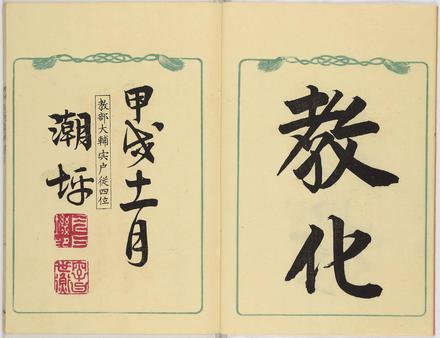 教化
甲戌十一月
教部大輔 宍戸從四位
潮坪